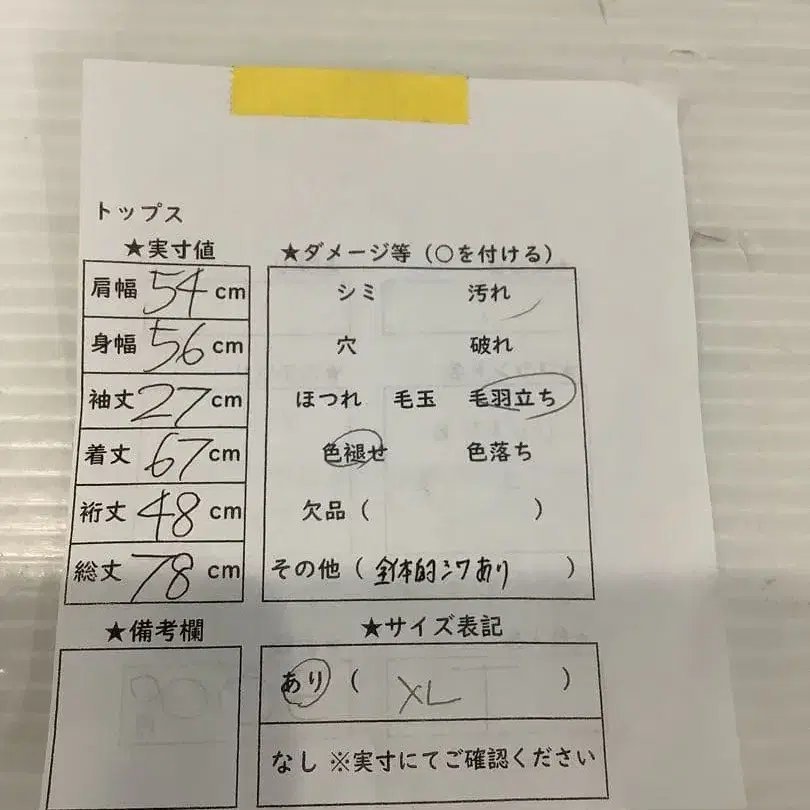 トップス
★実寸値
肩幅 54 cm
身幅 56 cm
袖丈 27 cm
着丈 67 cm
裄丈 48 cm
総丈 78 cm
★備考欄
★ダメージ等（○を付ける）
シミ 汚れ
穴 破れ
ほつれ 毛玉 毛羽立ち
色褪せ 色落ち
欠品（ ）
その他（全体的シワあり）
★サイズ表記
あり（XL）
なし ※実寸にてご確認ください